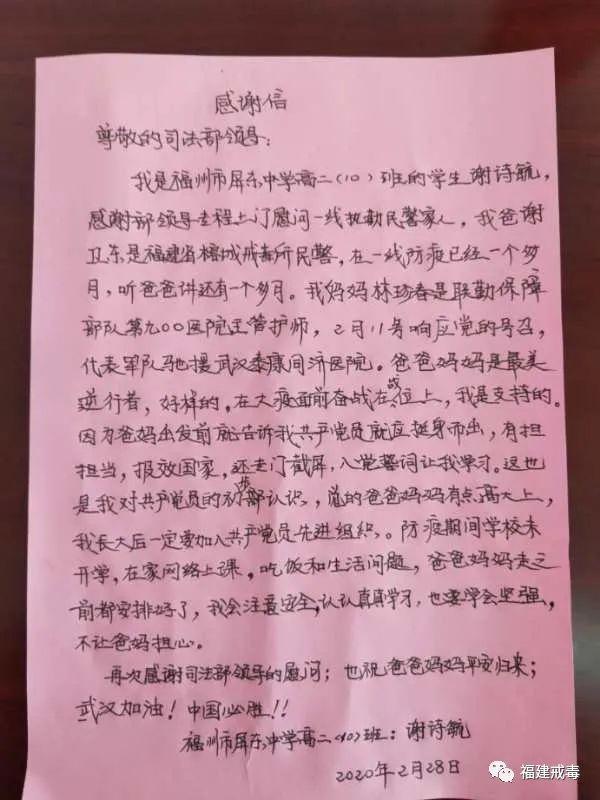 感谢信
尊敬的司法部领导：
我是福州市屏东中学高二（10）班的学生谢诗毓，
感谢部领导专程上门慰问一线执勤民警家人，我爸谢
卫东是福建省榕城戒毒所民警，在一线防疫已经一个多
月，听爸爸讲还有一个多月。我妈妈林琇春是联勤保障
部队第九〇〇医院主管护师，2月11号响应党的号召，
代表军队驰援武汉泰康同济医院。爸爸妈妈是最美
逆行者，好样的，在大疫面前奋战在战位上，我是支持的。
因为爸妈出发前就告诉我共产党员就应挺身而出，有担
担当，报效国家，还专门截屏，入党誓词让我学习。这也
是我对共产党员的初步认识，觉的爸爸妈妈有点高大上，
我长大后一定要加入共产党员先进组织。防疫期间学校未
开学，在家网络上课，吃饭和生活问题，爸爸妈妈走之
前都安排好了，我会注意安全，认认真真学习，也要学会坚强，
不让爸妈担心。
再次感谢司法部领导的慰问；也祝爸爸妈妈平安归来；
武汉加油！中国必胜！！
福州市屏东中学高二（10）班：谢诗毓
2020年2月28日
福建戒毒